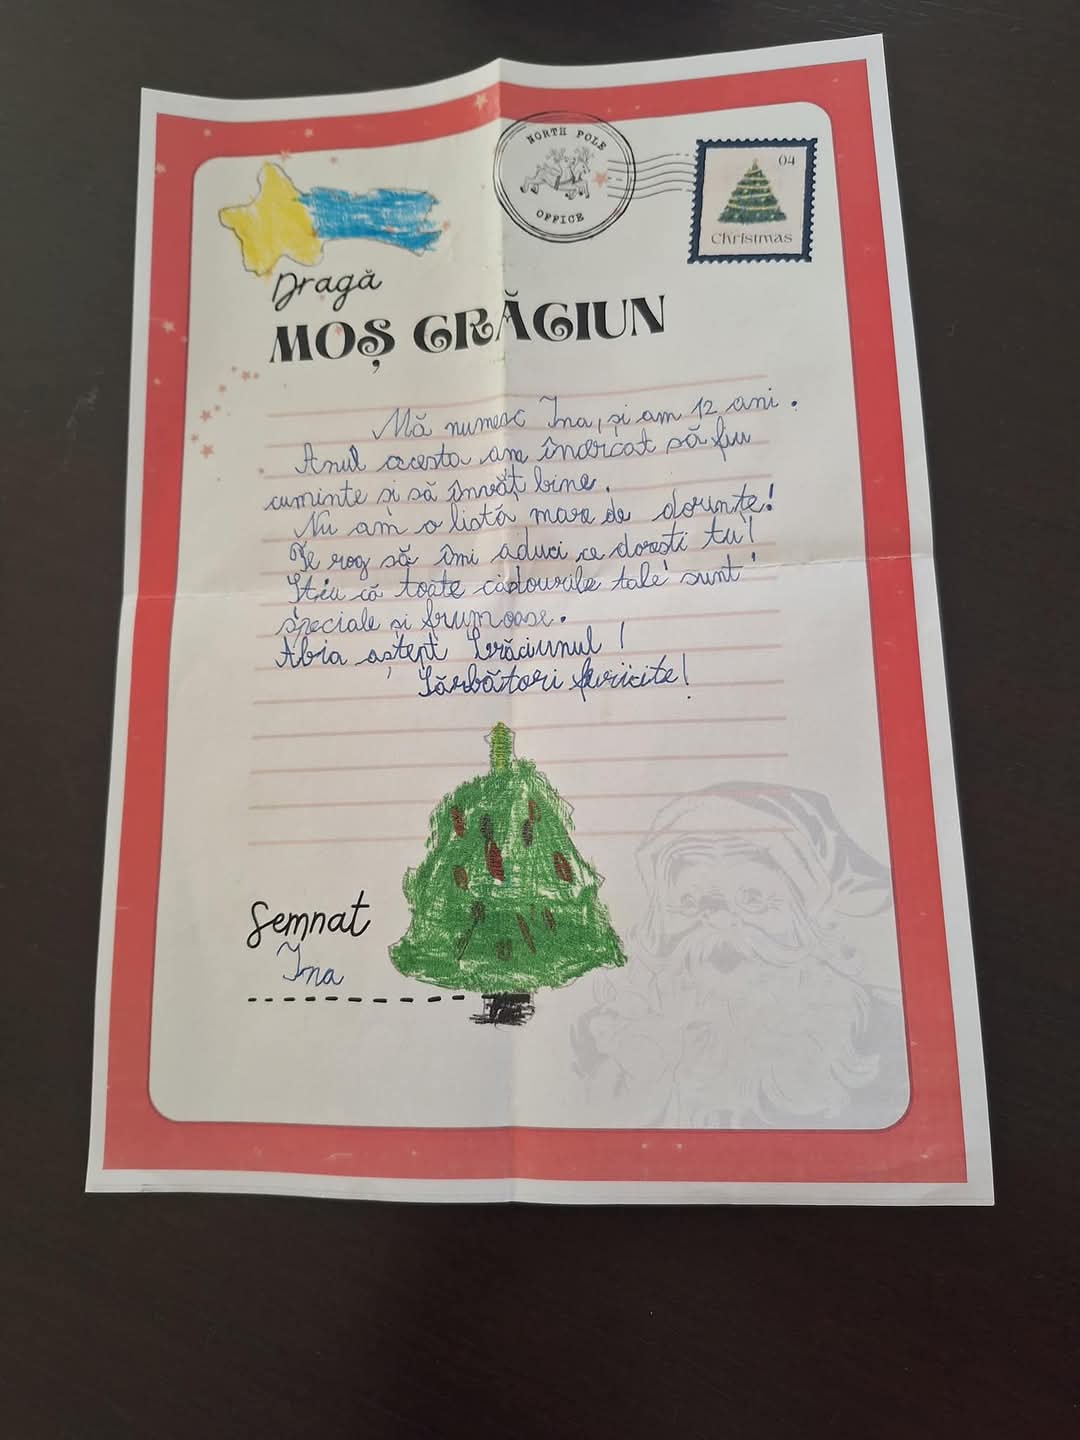 NORTH POLE
OFFICE
04
Christmas
Dragă
MOȘ CRĂCIUN
Mă numesc Ina, și am 12 ani.
Anul acesta am încercat să fiu
cuminte și să învăț bine.
Nu am o listă mare de dorințe!
Te rog să îmi aduci ce dorești tu!
Știu că toate cadourile tale sunt
speciale și frumoase.
Abia aștept Crăciunul!
Sărbători fericite!
Semnat
Ina